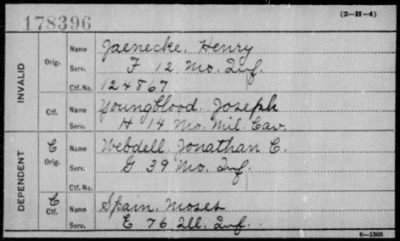 178396
(3-H-4)
INVALID
Orig.
Name Jaenecke, Henry
Serv. F 12 Mo. Inf.
Ctf. No. 124867
Ctf.
Name Youngblood, Joseph
Serv. H 14 Mo. Mil. Cav.
DEPENDENT
C
Orig.
Name Webdell, Jonathan C.
Serv. G 39 Mo. Inf.
Ctf. No.
C
Ctf.
Name Spain, Moses
Serv. E 76 Ill. Inf.